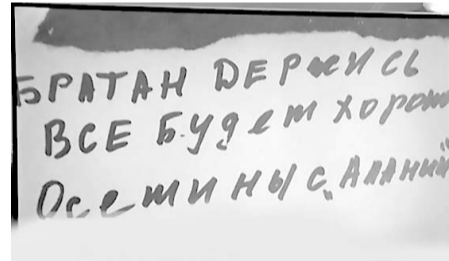 БРАТАН ДЕРЖИСЬ
ВСЕ БУдет хорош
Осетины с „Алании